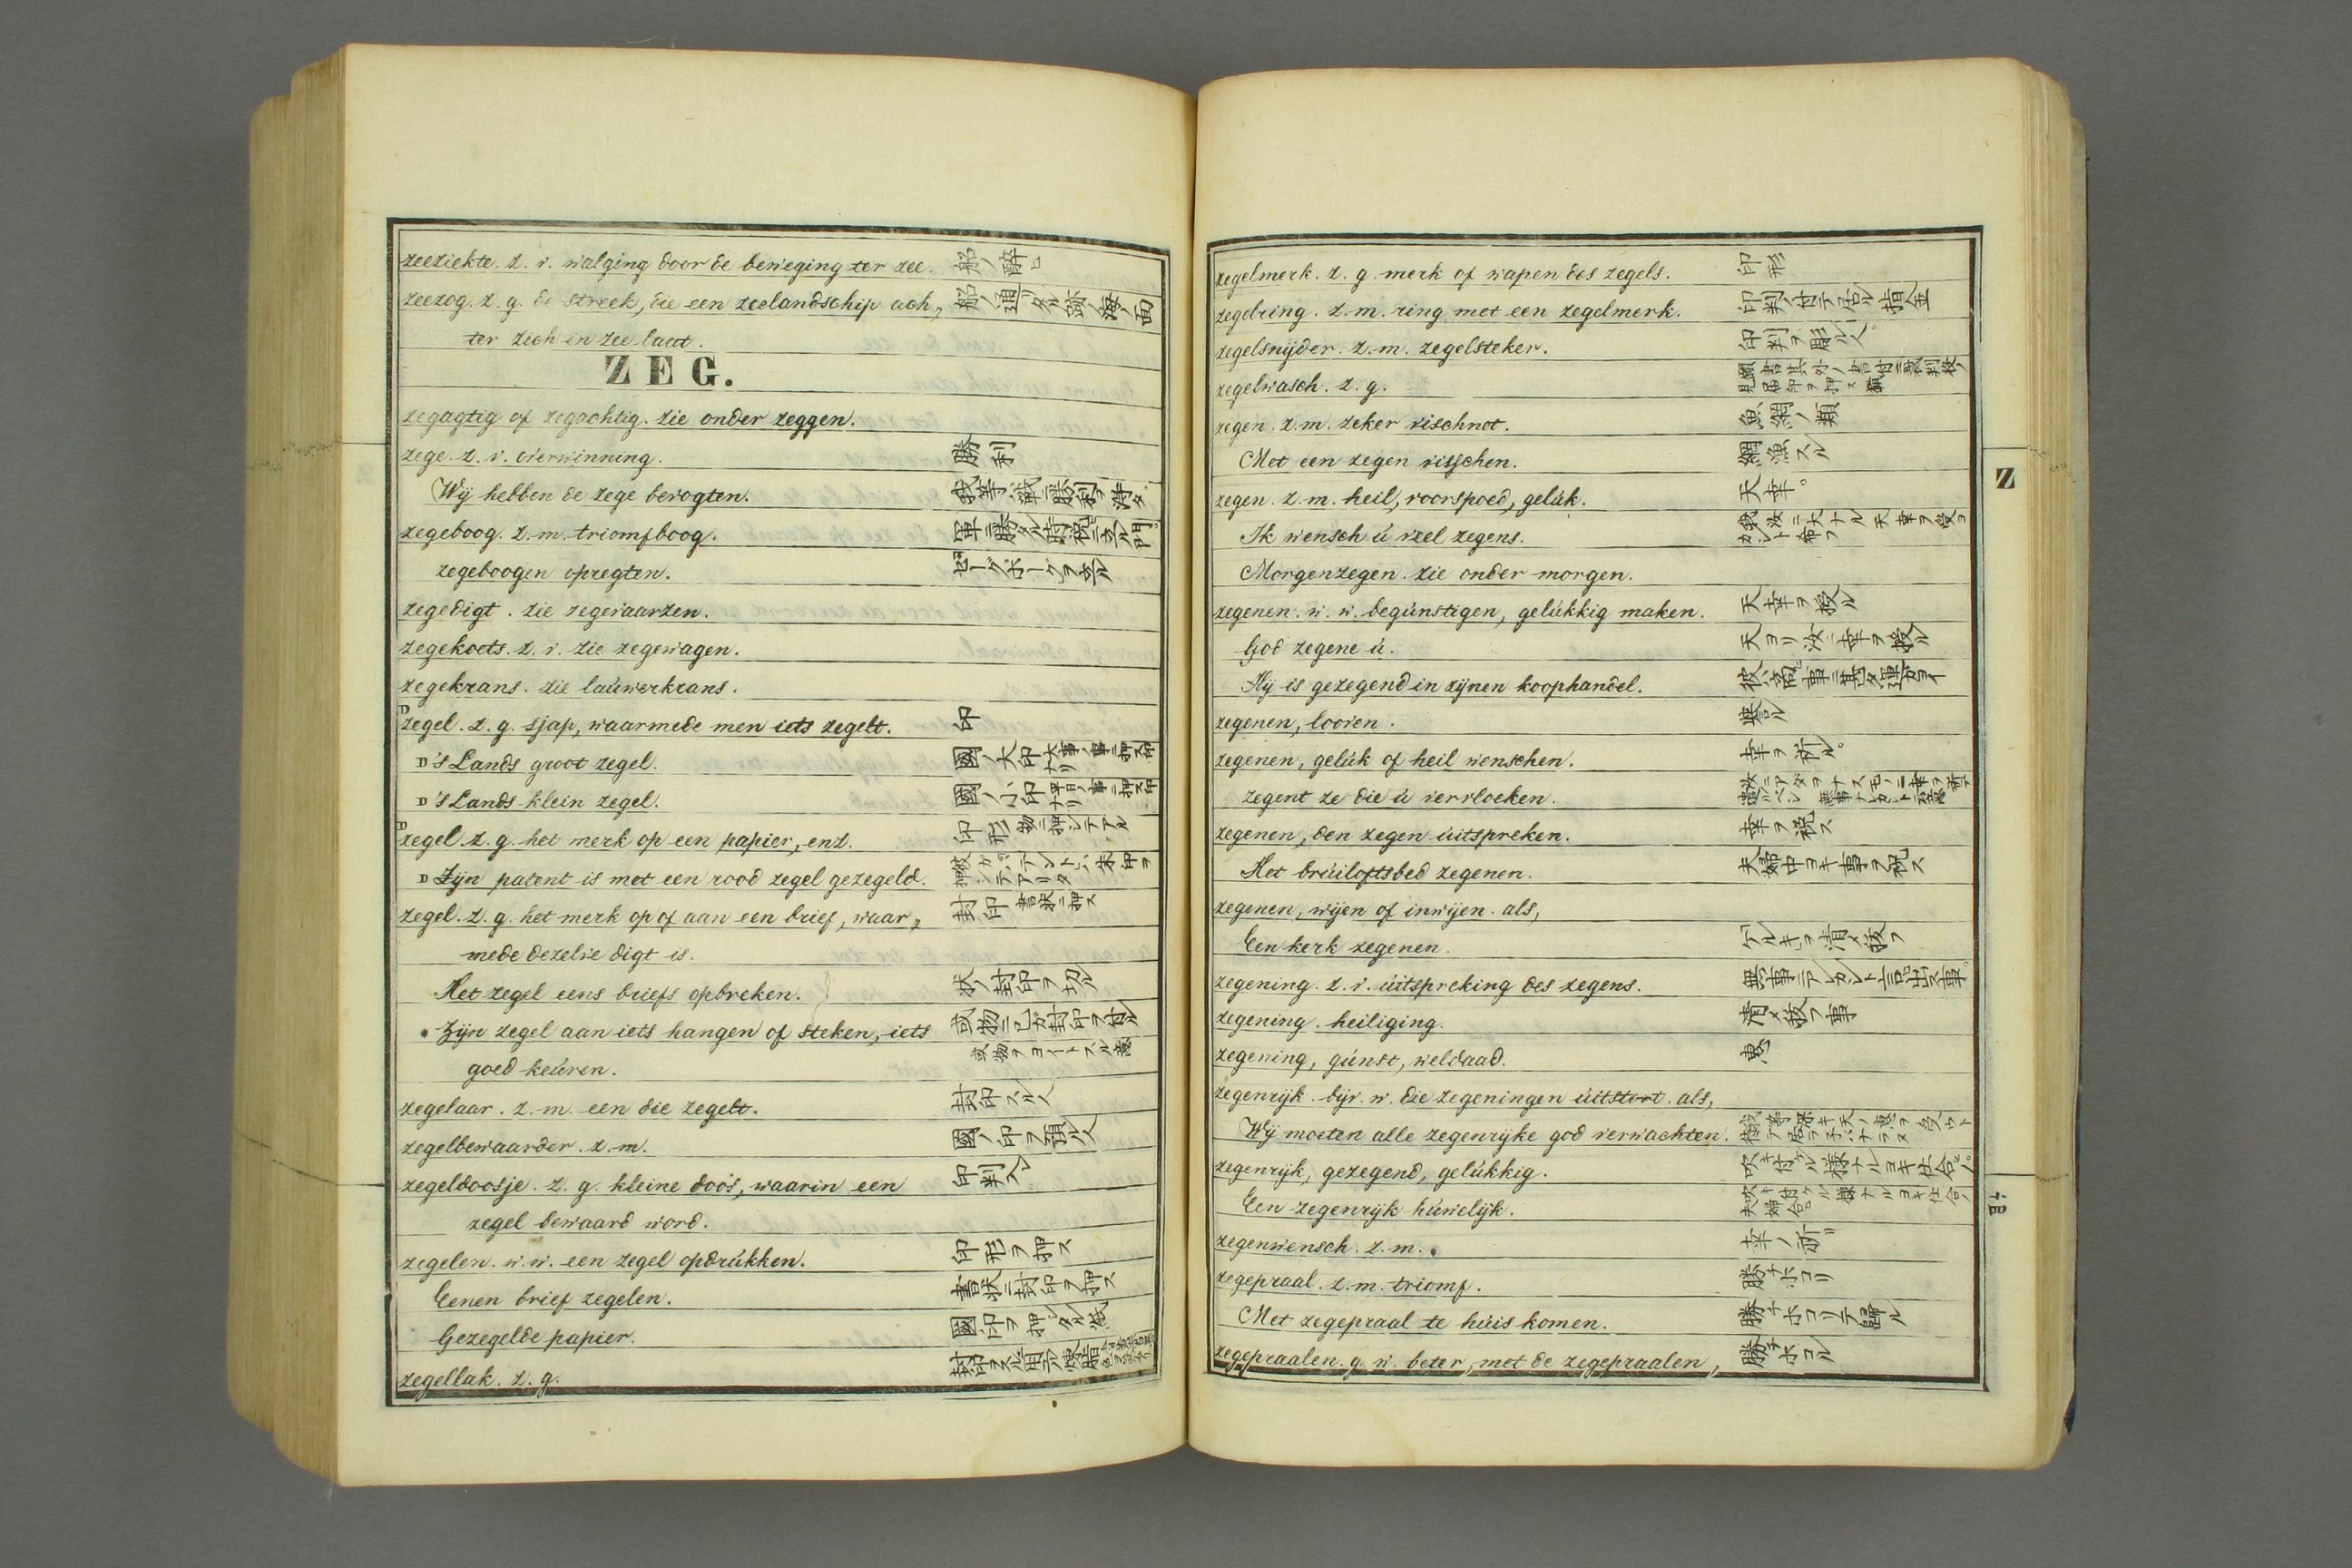 zeeziekte. z. v. walging door de beweging ter zee. 船ノ醉ヒ
zeezog. z. g. de streek, die een zeelandschip ach„ 船ノ通リタル跡ノ海ノ面
ter zich in zee laat.
ZEG.
zegagtig of zegachtig. zie onder zeggen.
zege. z. v. overwinning. 勝利
Wij hebben de zege bevogten. 我等ハ戰ニ勝利ヲ得タ
zegeboog. z. m. triomfboog. 軍ニ勝タル時祝ヒニ立ル門
zegeboogen opregten. ゼーゲボーグヲ立ル
zegedigt. zie zegevaarzen.
zegekoets. z. v. zie zegewagen.
zegekrans. zie laúwerkrans.
D zegel. z. g. sjap, waarmede men iets zegelt. 印
D 's Lands groot zegel. 國ノ大印 大事ノ事ニ押ス印ナリ
D 's Lands klein zegel. 國ノ小印 平日ノ事ニ押ス印ナリ
D zegel. z. g. het merk op een papier, enz. 印形 物ニ押シテアル
D Zijn patent is met een rood zegel gezegeld. 彼カパテントハ朱印ヲ押シテアリタ
zegel. z. g. het merk op of aan een brief, waar„ 封印 書状ニ押ス
mede dezelve digt is.
Het zegel eens briefs opbreken. 状ノ封印ヲ切ル
* Zijn zegel aan iets hangen of steken, iets 或物ニ己ガ封印ヲ付ル
goed keúren. 或物ヲヨイトスル意
zegelaar. z. m. een die zegelt. 封印スル人
zegelbewaarder. z. m. 國ノ印ヲ預ル人
zegeldoosje. z. g. kleine doos, waarin een 印判入
zegel bewaard word.
zegelen. w. w. een zegel opdrúkken. 印形ヲ押ス
Eenen brief zegelen. 書状ニ封印ヲ押ス
Gezegelde papier. 國印ヲ押シタル紙
zegellak. z. g. 封印ヲスルニ用ル
zegelmerk. z. g. merk of wapen des zegels. 印形
zegelring. z. m. ring met een zegelmerk. 印判ノ付テ居ル指金
zegelsnijder. z. m. zegelsteker. 印判ヲ彫ル人。
zegelwasch. z. g.
zegen. z. m. zeker vischnot. 魚網ノ類
Met een zegen visschen. 網漁スル
zegen. z. m. heil, voorspoed, gelúk. 天幸。
Ik wensch ú vzel zegens. 我汝ニ大ナル天幸ヲ受ヨカシト希フ
Morgenzegen. zie onder morgen.
zegenen. w. w. begúnstigen, gelúkkig maken. 天幸ヲ授ル
God zegene ú. 天ヨリ汝ニ幸ヲ授ル
Hij is gezegend in zijnen koophandel. 彼ハ商ヒ事ニ甚タ運ヨイ
zegenen, looven. 譽ル
zegenen, gelúk of heil wenschen. 幸ヲ祈ル。
zegent ze die ú vervloeken.
zegenen, den zegen úitspreken. 幸ヲ祝ス
Het brúiloftsbed zegenen. 夫婦中ヨキ事ヲ祝ス
zegenen, wijen of inwijen. als,
Een kerk zegenen. ケルキヲ清メ祓フ
zegening. z. v. úitspreking des zegens. 無事テアレカシト言出ス事。
zegening. heiliging. 清メ祓フ事
zegening, gúnst, weldaad. 惠
zegenrijk. bijv. w. die zegeningen úitstort. als,
Wij moeten alle zegenrijke god verwachten.
zegenrijk, gezegend, gelúkkig. 吹キ付ケル樣ナルヨキ仕合ノ。
Een zegenrijk húwelijk. 吹キ付ケル樣ナルヨキ仕合ノ夫婦合
zegenwensch. z. m. 幸ノ祈
zegepraal. z. m. triomf. 勝チホコリ
Met zegepraal te húis komen. 勝チホコリテ歸ル
zegepraalen. g. w. beter, met de zegepraalen, 勝チホコル
Z